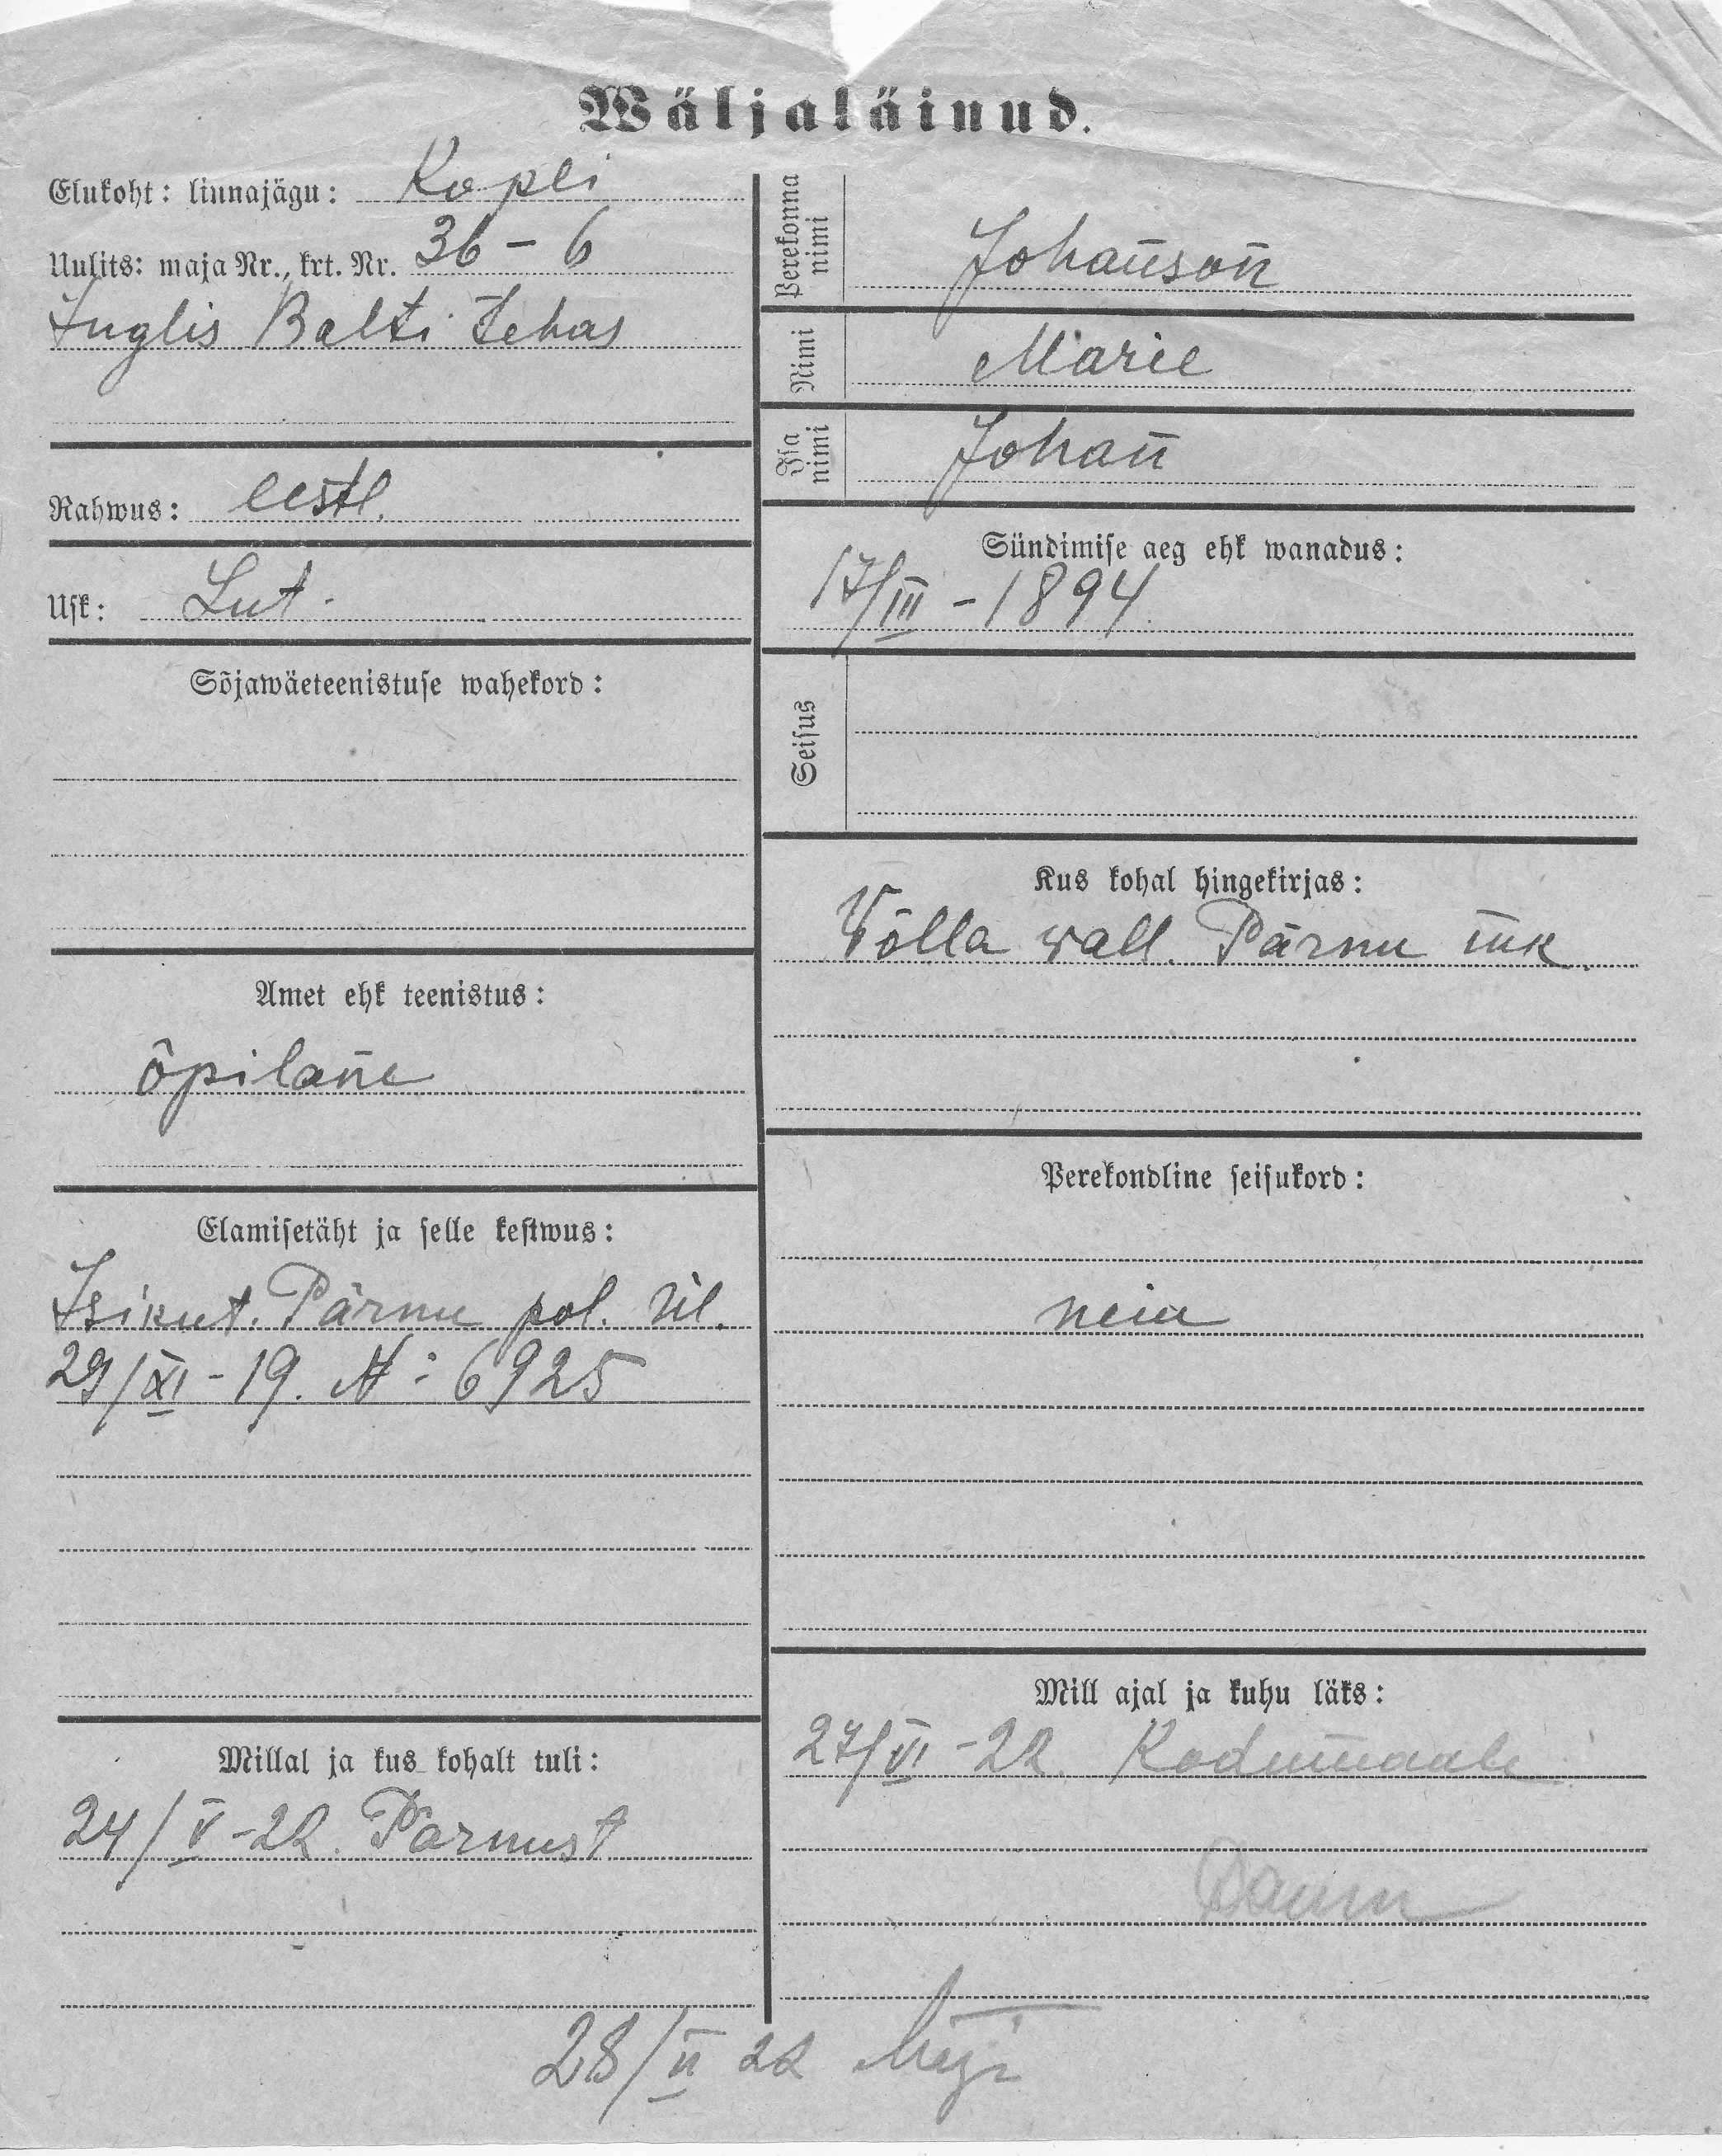 Wäljaläinud.
Elukoht: linnajägu: Kopli
Uulits: maja Nr., krt. Nr. 36 – 6
Inglis Balti tehas
Rahwus: eestl.
Usk: Lut.
Sõjawäeteenistuse wahekord:
Amet ehk teenistus:
õpilane
Elamisetäht ja selle kestwus:
Isikut. Pärnu pol. ül.
29/XI - 19. N: 6925
Millal ja kus kohalt tuli:
24/V - 22. Pärnust
Perekonna nimi
Johanson
Nimi
Marie
Isa nimi
Johan
Sündimise aeg ehk wanadus:
17/III - 1894.
Seisus
Kus kohal hingekirjas:
Võlla wall. Pärnu mk.
Perekondline seisukord:
neiu
Mill ajal ja kuhu läks:
27/VI - 22. Kodumaale
28/VI 22